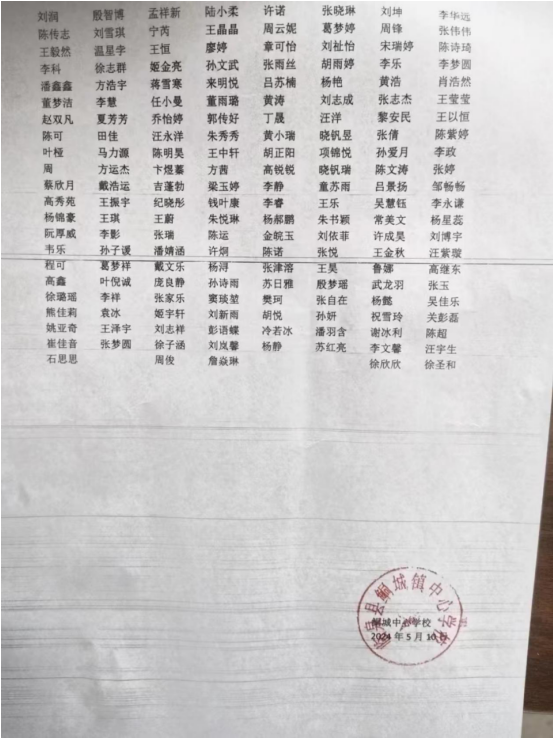 刘润 殷智博 孟祥新 陆小柔 许诺 张晓琳 刘坤 李华远
陈传志 刘雪琪 宁芮 王晶晶 周云妮 葛梦婷 周锋 张伟伟
王毅然 温星宇 王恒 廖婷 章可怡 刘祉怡 宋瑞婷 陈诗琦
李科 徐志群 姬金亮 孙文武 张雨丝 胡雨婷 李乐 李梦圆
潘鑫鑫 方浩宇 蒋雪寒 来明悦 吕苏楠 杨艳 黄浩 肖浩然
董梦洁 李慧 任小曼 董雨璐 黄涛 刘志成 张志杰 王莹莹
赵双凡 夏芳芳 乔怡婷 郭传好 丁晟 汪洋 黎安民 王以恒
陈可 田佳 汪永洋 朱秀秀 黄小瑞 晓钒昱 张倩 陈紫婷
叶桠 马力源 陈明昊 王中轩 胡正阳 项锦悦 孙爱月 李政
周 方运杰 卞煜蓁 方茜 高锐锐 晓钒瑞 陈文涛 张婷
蔡欣月 戴浩运 吉蓬勃 梁玉婷 李静 童苏雨 吕景扬 邹畅畅
高秀苑 王振宇 纪晓彤 钱叶康 李睿 王乐 吴慧钰 李永谦
杨锦豪 王琪 王蔚 朱悦琳 杨郝鹏 朱书颖 常美文 杨星蕊
阮厚威 李影 张瑞 陈运 金皖玉 刘依菲 许成昊 刘博宇
韦乐 孙子谖 潘婧涵 许炯 陈诺 张悦 王金秋 汪紫璇
程可 葛梦祥 戴文乐 杨浔 张津溶 王昊 鲁娜 高继东
高鑫 叶倪诚 庞良静 孙诗雨 苏日雅 殷梦瑶 武龙羽 张玉
徐璐瑶 李祥 张家乐 窦琰堃 樊珂 张自在 杨懿 吴佳乐
熊佳莉 袁冰 姬宇轩 刘新雨 胡悦 孙妍 祝雪玲 关彭磊
姚亚奇 王泽宇 刘志祥 彭语蝶 冷若冰 潘羽含 谢冰利 陈超
崔佳音 张梦圆 徐子涵 刘岚馨 杨静 苏红亮 李文馨 汪宇生
石思思 周俊 詹焱琳 徐欣欣 徐圣和
县鲖城镇中心学校
鲖城中心学校
2024 年 5 月 10 日